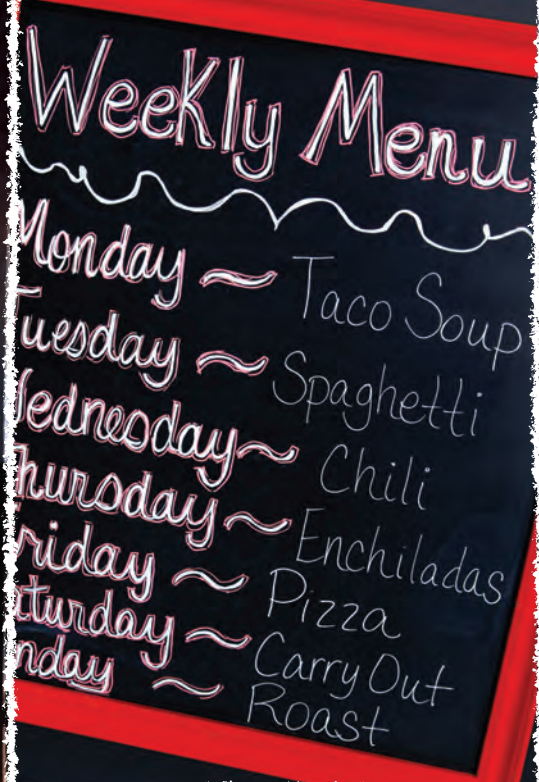 Weekly Menu
Monday ~ Taco Soup
Tuesday ~ Spaghetti
Wednesday ~ Chili
Thursday ~ Enchiladas
Friday ~ Pizza
Saturday ~ Carry Out
Sunday ~ Roast